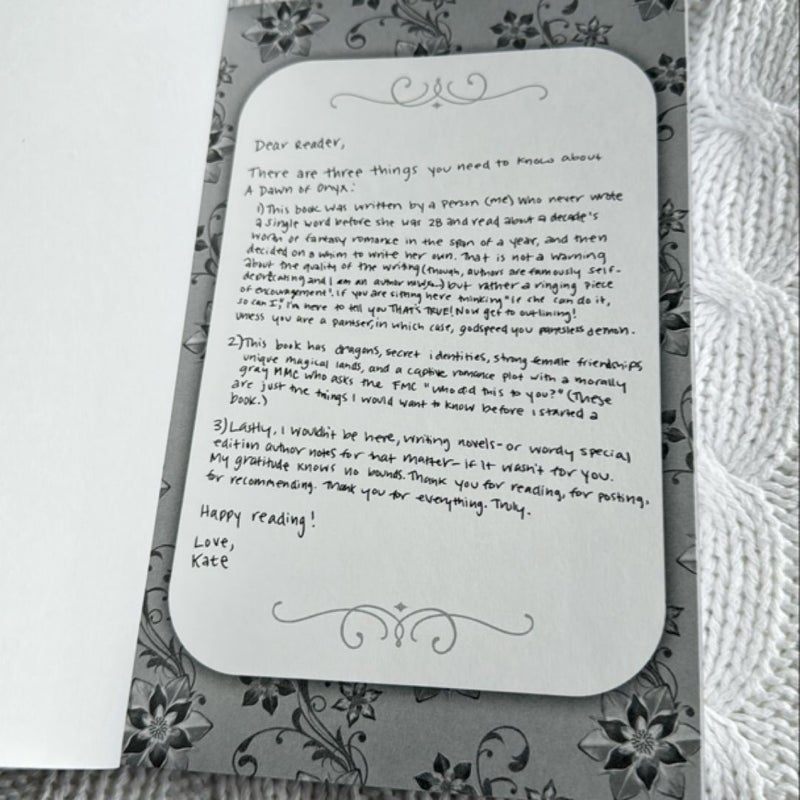 Dear Reader,
There are three things you need to know about
A Dawn of Onyx:
1) This book was written by a person (me) who never wrote
a single word before she was 28 and read about a decade's
worth of fantasy romance in the span of a year, and then
decided on a whim to write her own. That is not a warning
about the quality of the writing (though, authors are famously self-
deprecating and I am an author now) but rather a ringing piece
of encouragement! If you are sitting here thinking "if she can do it,
so can I," I'm here to tell you THAT'S TRUE! Now get to outlining!
Unless you are a pantser, in which case, godspeed you demon.
2) This book has dragons, secret identities, strong female friendships
unique magical lands, and a captive romance plot with a morally
gray MMC who asks the FMC "who did this to you?" (These
are just the things I would want to know before I started a
book.)
3) Lastly, I wouldn't be here, writing novels- or wordy special
edition author notes for that matter- if it wasn't for you.
My gratitude knows no bounds. Thank you for reading, for posting,
for recommending. Thank you for everything. Truly.
Happy reading!
Love,
Kate